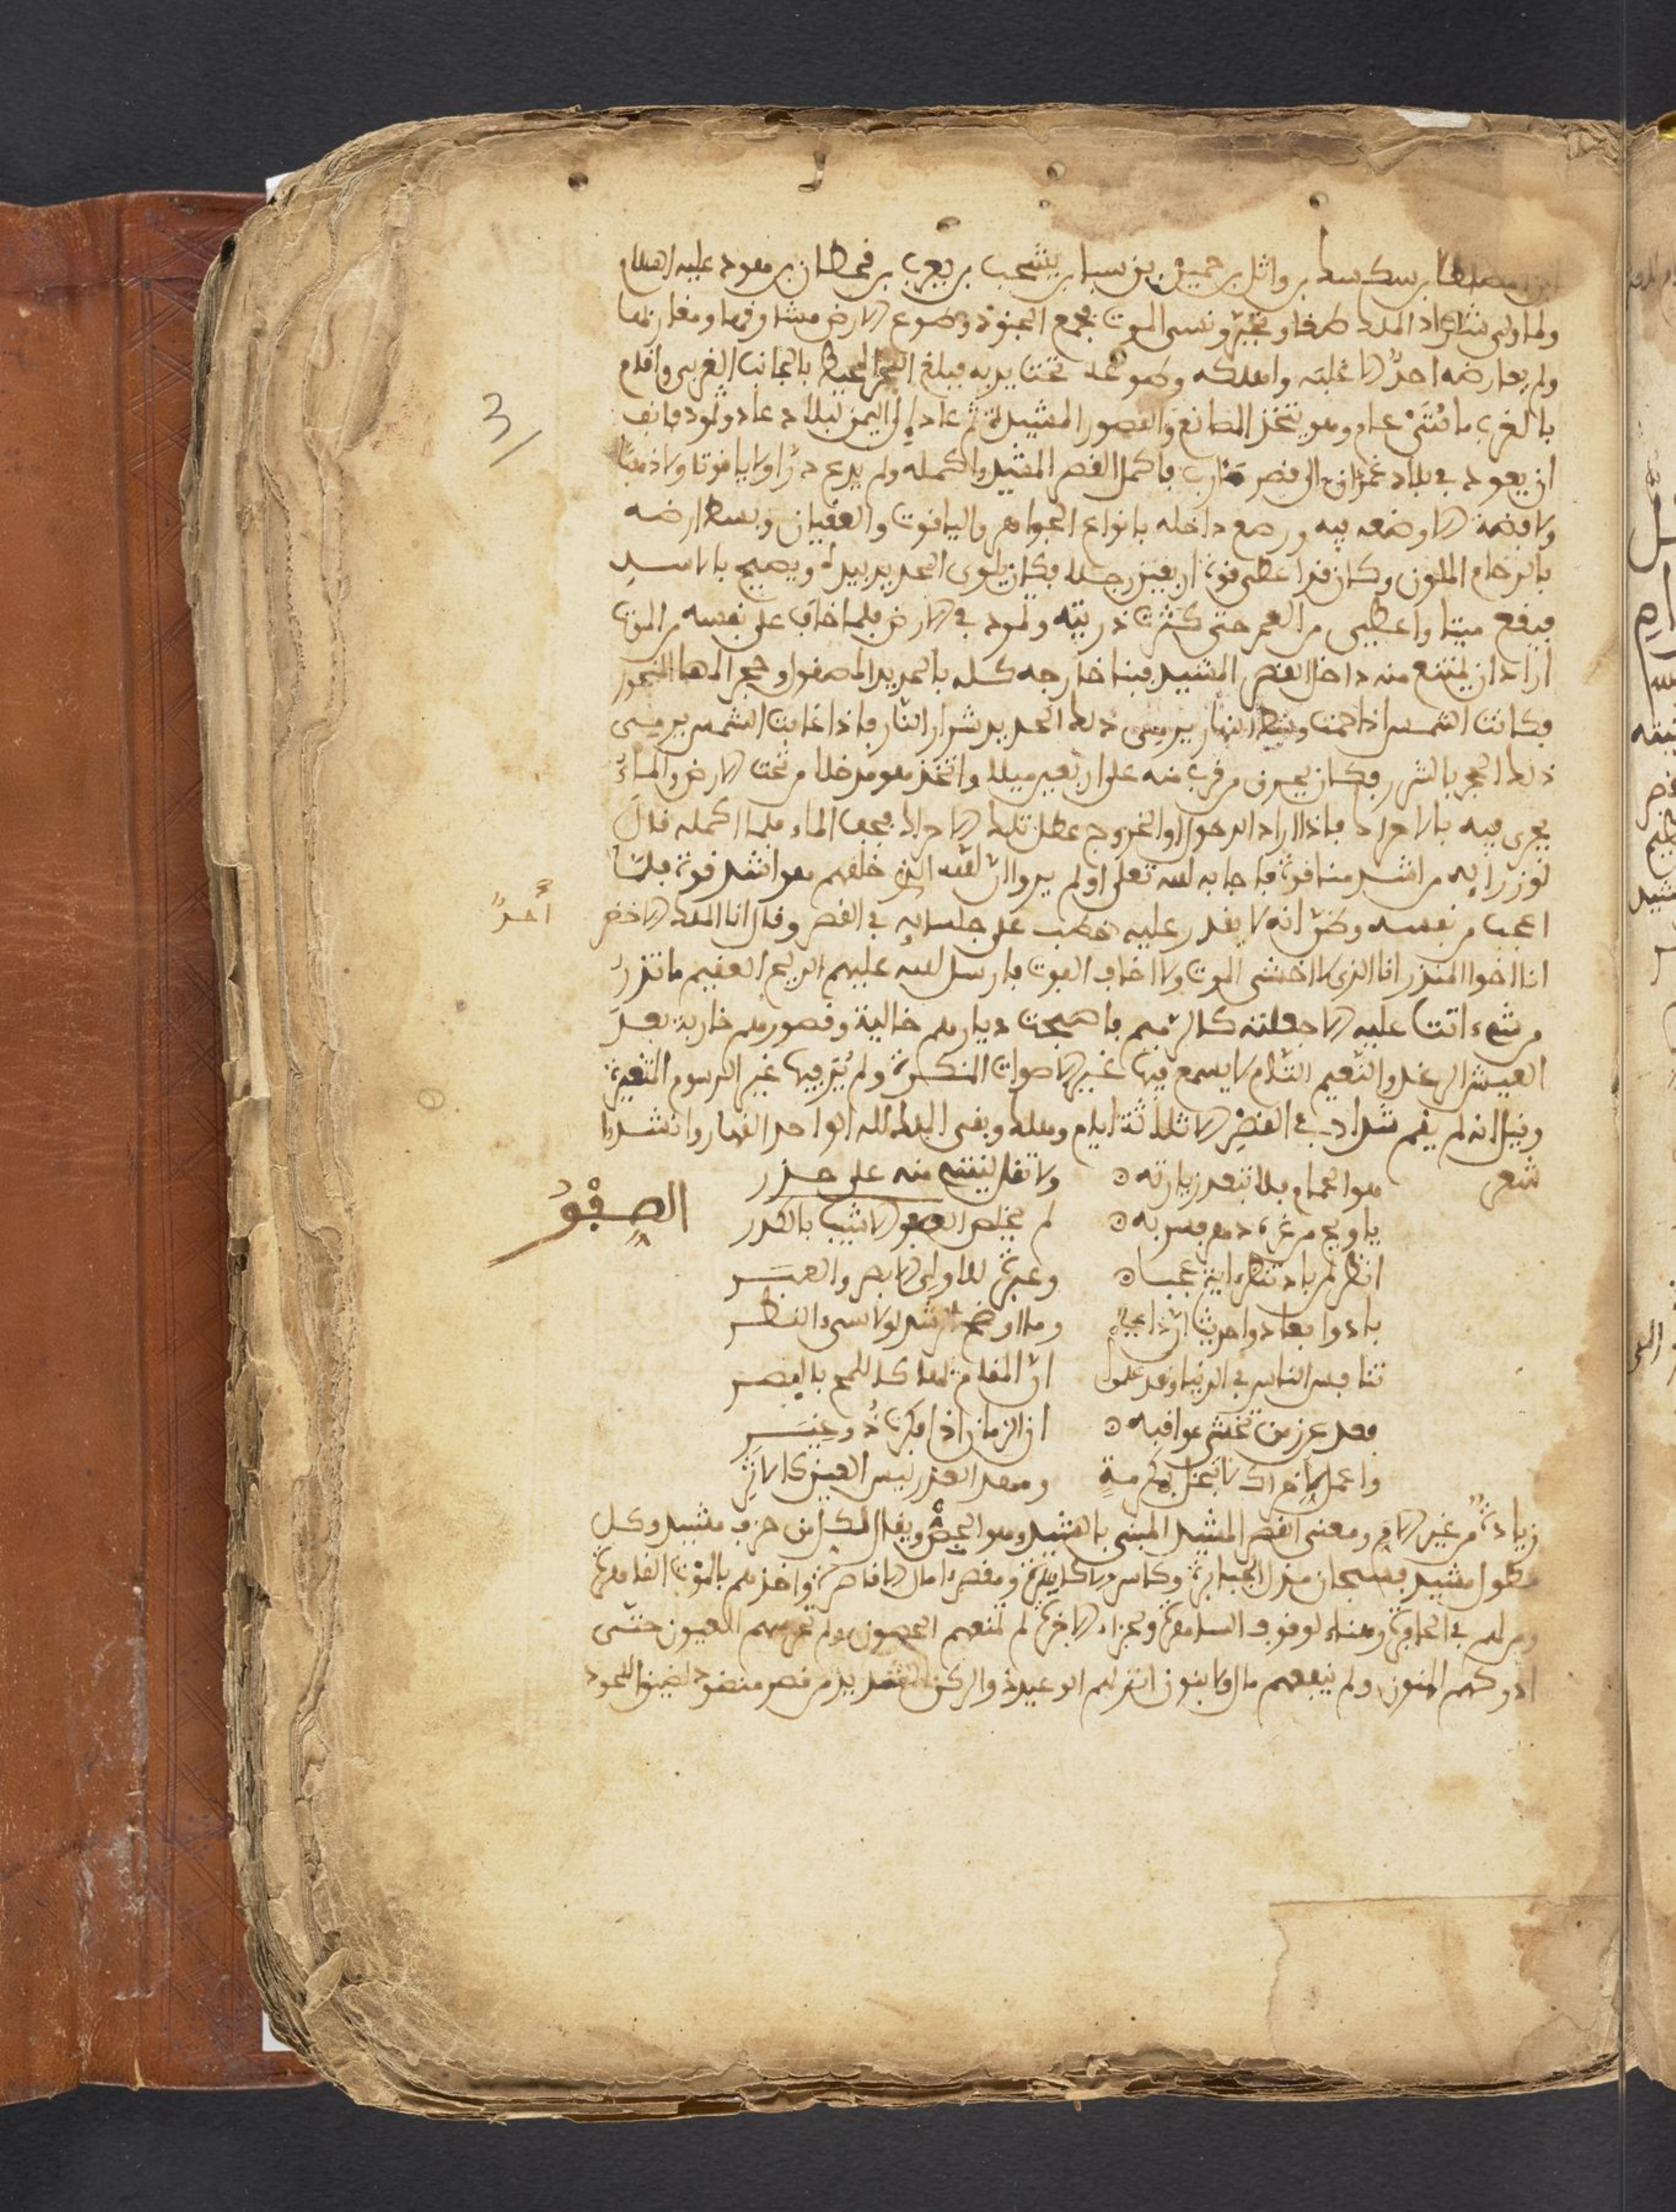 بن سكسك بن وائل بن حمير بن سبا بن يشجب بن يعرب بن قحطان بن هود عليه السلام
ولما ولي شداد الملك طغا وتجبر ونسى الموت فجمع الجنود وطوع الارض مشارقها ومغاربها
ولم يعارضه احدٌ الا غلبه واهلكه وطوعه تحت يديه فبلغ البحر المحيط بالجانب الغربى واقام
بالغرب مائتى عام وهو يتخذ المصانع والقصور المشيدة ثم عاد الى اليمن لبلاد عاد وثمود فانف
3
ان يعود فى بلاد غمدان الى قصر مارب فاكمل القصر المشيد واكمله ولم يدع درّا ولا ياقوتا ولا ذهبًا
ولا فضة الا وضعه فيه ورصع داخله بانواع الجواهر والياقوت والعقيان وبسط ارضه
بالرخام الملون وكان قد اعطى قوة اربعين رجلا فكان يلوى الحديد بيده ويصيح بالاسد
فيقع ميتا واعطى من العمر حتى كثرت ذريته وثمود فى الارض فلما خاف على نفسه من الموت
اراد ان يمتنع منه داخل القصر المشيد فبنا خارجه كله بالحديد المصقول وحجر المها المنجور
فكانت الشمس اذا حمت وسط النهار يرمى ذلك الحديد شرار النار فاذا غابت الشمس يرمى
ذلك الحجر بالشرر فكان يحرق من قرب منه على اربعين ميلا واتخذ هو مدخلا من تحت الارض والماءُ
يجرى فيه بالاحراد فاذا اراد الدخول او الخروج عطل تلك الاحراد فيجف الماء فلما اكمله قال
لوزرايه من اشد منا قوة فاجابه الله تعلى اولم يروا ان الله الذى خلقهم هو اشد قوة فلما
اعجب من نفسه وظن انه لا يقدر عليه خطب على جلسايه فى القصر وقال انا الملك الاخضر
أحدٌ
انا اخوا المنذر انا الذى لا اخشى الموت ولا اخاف الفوت فارسل الله عليهم الريح العقيم ما تذر
من شىء اتت عليه الا جعلته كالرميم فاصبحت ديارهم خالية وقصورهم خاربة بعد
العيش الرغد والنعيم التام لا يسمع فيها غير الاصوات المنكرة ولم ير فيها غير الرسوم المتغيرة
وقيل انه لم يقم شداد فى القصر الا ثلاثة ايام وهلك وبقى الملك لله الواحد القهار وانشدوا
شعر هو الحمام فلا تبعد زيارته ه ولا تقل ليتنى منه على حذر
يا ويح من غره دهر فسر به ه لم يخلص الصفو الا شيب بالكدر
الصِفْوُ
انظر لمن باد تنظر اية عجبا ه وعبرة لاولى الابصر والعبر
بادوا فعادوا حديثا ان ذا عجب وما اوضح الرشد لولا سىء النظر
تنافس الناس فى الدنيا وقد علموا ان المقام بها كاللمح بالبصر
فعد عن من تخشى عواقبه ه ان الزمان اذا فكرت ذُو عِيَر
واعمل لاخراك لا تبخل بمكرمةٍ ومهد العذر ليس العين كالاثر
زيادة من غير الام ومعنى القصر المشيد المبنى بالشيد وهو الجص ويقال لكل من حزف مشيد وكل
مطول مشيد فسبحان مذل الجبابرة وكاسر الاكاسرة ومقصر امال القياصرة واخذهم بالموت القاهرة
ومن لهم فى الحافرة وهناك لوقوف الساهرة وجزاء الاخرة لم تمنعهم الحصون ولم تحرسهم العيون حتى
ادركهم المنون ولم ينفعهم مال ولا بنون